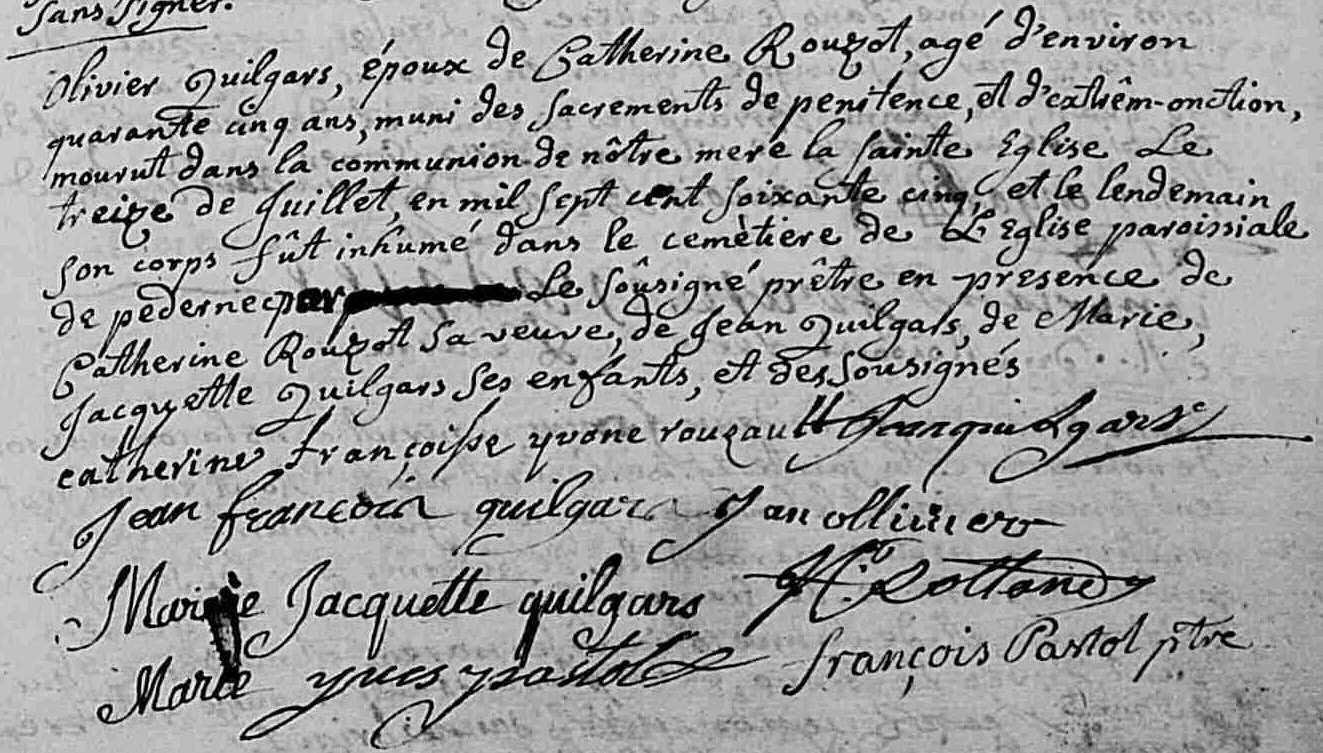 sans signer.
Olivier Quilgars, époux de Catherine Rouzot, agé d'environ
quarante cinq ans, muni des sacrements de penitence, et d'extrêm-onction,
mourut dans la communion de nôtre mere la sainte Eglise Le
treize de Juillet, en mil sept cent soixante cinq, et le lendemain
son corps fût inhumé dans le cemètiere de L'Eglise paroissiale
de pedernec par Le soûsigné prêtre en presence de
Catherine Rouzot sa veuve, de Jean Quilgars, de Marie,
Jacquette Quilgars ses enfants, et des sousignés
catherine françoisse yvone rouzault Jean quilgars
Jean francois quilgars Jan ollivier
Marie Jacquette quilgars
Marie yves pastol françois Pastol ptre